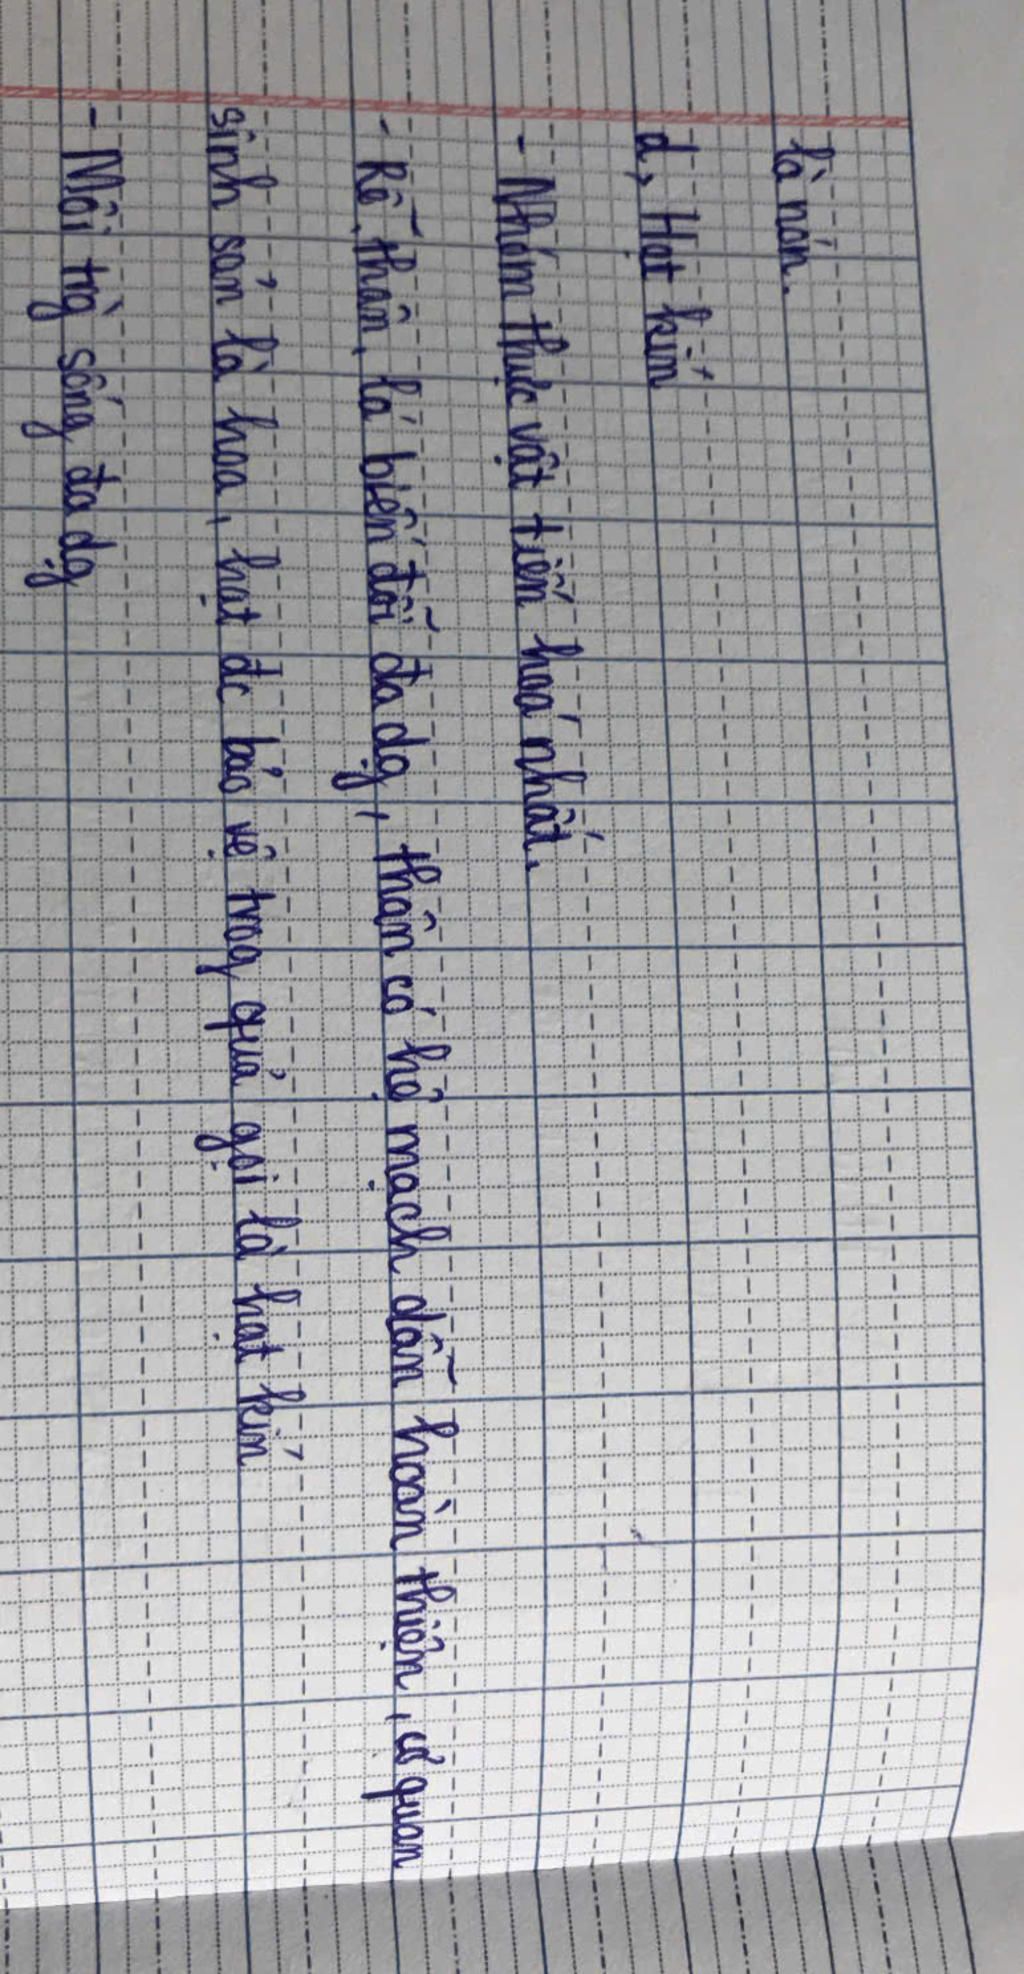 là nón.
d, Hạt kín
- Nhóm thực vật tiến hoá nhất.
- Rễ, thân, lá biến đổi đa dg, thân có hệ mạch dẫn hoàn thiện, cơ quan
sinh sản là hoa, hạt đc bảo vệ trog quả gọi là hạt kín
- Môi trg sống đa dg